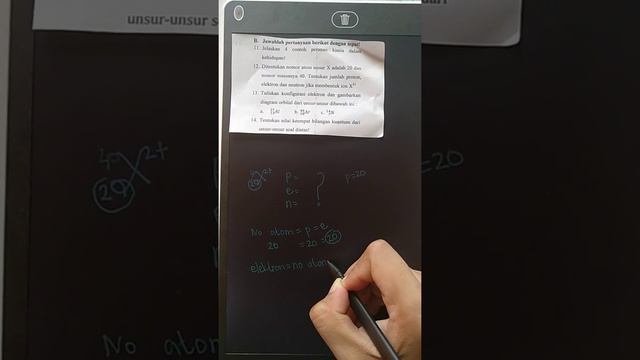 unsur-unsur s
B. Jawablah pertanyaan berikut dengan tepat!
11. Jelaskan 4 contoh peranan kimia dalam
kehidupan!
12. Ditentukan nomor atom unsur X adalah 20 dan
nomor massanya 40. Tentukan jumlah proton,
elektron dan neutron jika membentuk ion X²⁺
13. Tuliskan konfigurasi elektron dan gambarkan
diagram orbital dari unsur-unsur dibawah ini :
a. b. c.
14. Tentukan nilai keempat bilangan kuantum dari
unsur-unsur soal diatas!
40 X 2+
20
p =
e =
n =
?
p=20
No atom = p = e
20 = 20 = 20
elektron = no atom
40 X 2+
20
=20
No atom